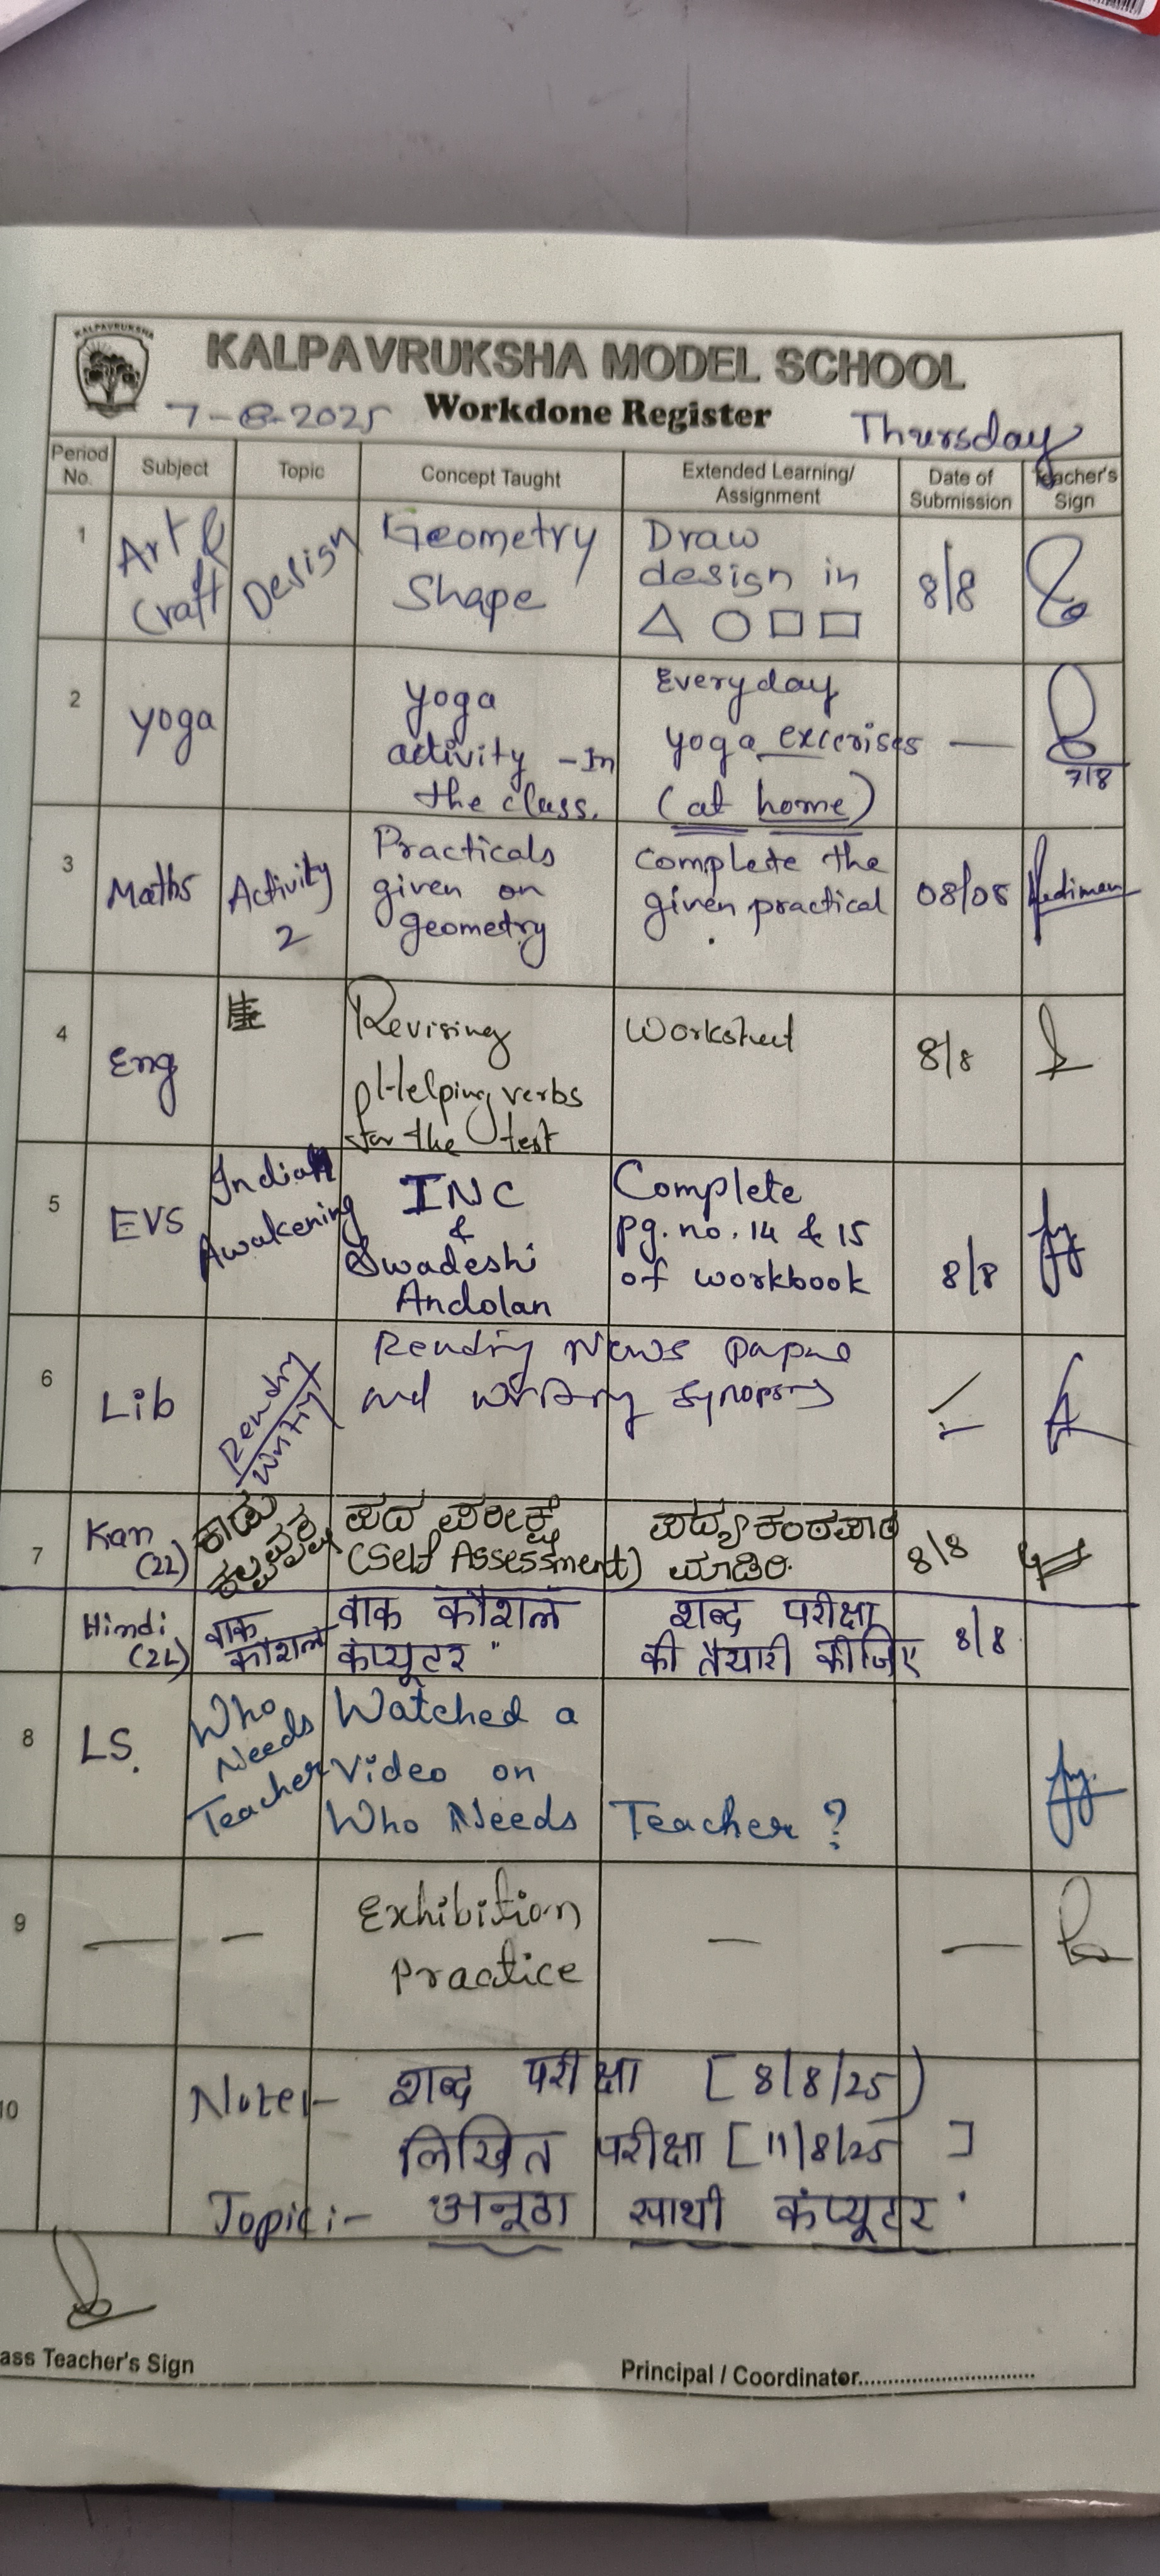 KALPAVRUKSHA
KALPAVRUKSHA MODEL SCHOOL
7-8-2025 Workdone Register Thursday
Period No. Subject Topic Concept Taught Extended Learning/ Assignment Date of Submission Teacher's Sign
1 Art & Craft Design Geometry Shape Draw design in 8/8
2 Yoga Yoga activity - In the class. Everyday yoga excerises (at home) — 7/8
3 Maths Activity 2 Practicals given on geometry Complete the given practical 08/08
4 Eng Revising Helping verbs for the test Worksheet 8/8
5 EVS Indian Awakening INC & Swadeshi Andolan Complete pg. no. 14 & 15 of workbook 8/8
6 Lib Reading Writing Reading News paper and writing synopsis
7 Kan (2L) ಪದ ಪರೀಕ್ಷೆ (Self Assessment) ಪದ್ಯ ಕಂಠಪಾಠ ಮಾಡಿರಿ. 8/8
Hindi (2L) वाक कौशल वाक कौशल कंप्यूटर " शब्द परीक्षा की तैयारी कीजिए 8/8
8 LS. Who Needs Teacher Watched a Video on Who Needs Teacher ?
9 — — Exhibition Practice — —
10 Note:- शब्द परीक्षा [8/8/25)
लिखित परीक्षा [11/8/25]
Topic:- अनूठा साथी कंप्यूटर '
ass Teacher's Sign
Principal / Coordinator..............................